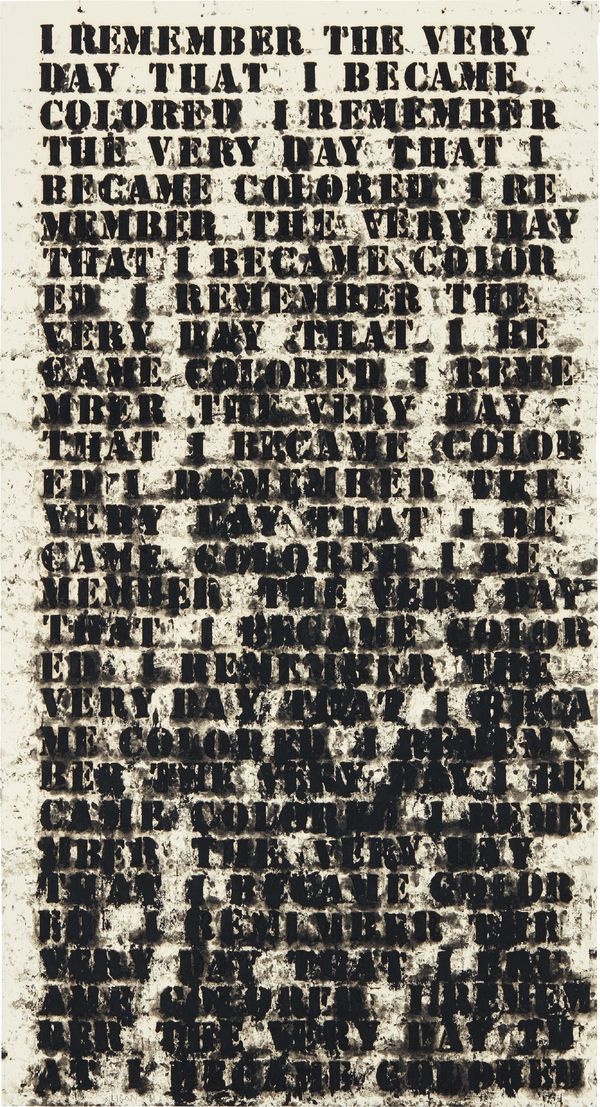 I REMEMBER THE VERY
DAY THAT I BECAME
COLORED I REMEMBER
THE VERY DAY THAT I
BECAME COLORED I RE
MEMBER THE VERY DAY
THAT I BECAME COLOR
ED I REMEMBER THE
VERY DAY THAT I BE
CAME COLORED I REME
MBER THE VERY DAY
THAT I BECAME COLOR
ED I REMEMBER THE
VERY DAY THAT I BE
CAME COLORED I RE
MEMBER THE VERY DAY
THAT I BECAME COLOR
ED I REMEMBER THE
VERY DAY THAT I BECA
ME COLORED I REMEM
BER THE VERY DAY I BE
CAME COLORED I REME
MBER THE VERY DAY
THAT I BECAME COLOR
ED I REMEMBER THE
VERY DAY THAT I BEC
AME COLORED I REMEM
BER THE VERY DAY TH
AT I BECAME COLORED